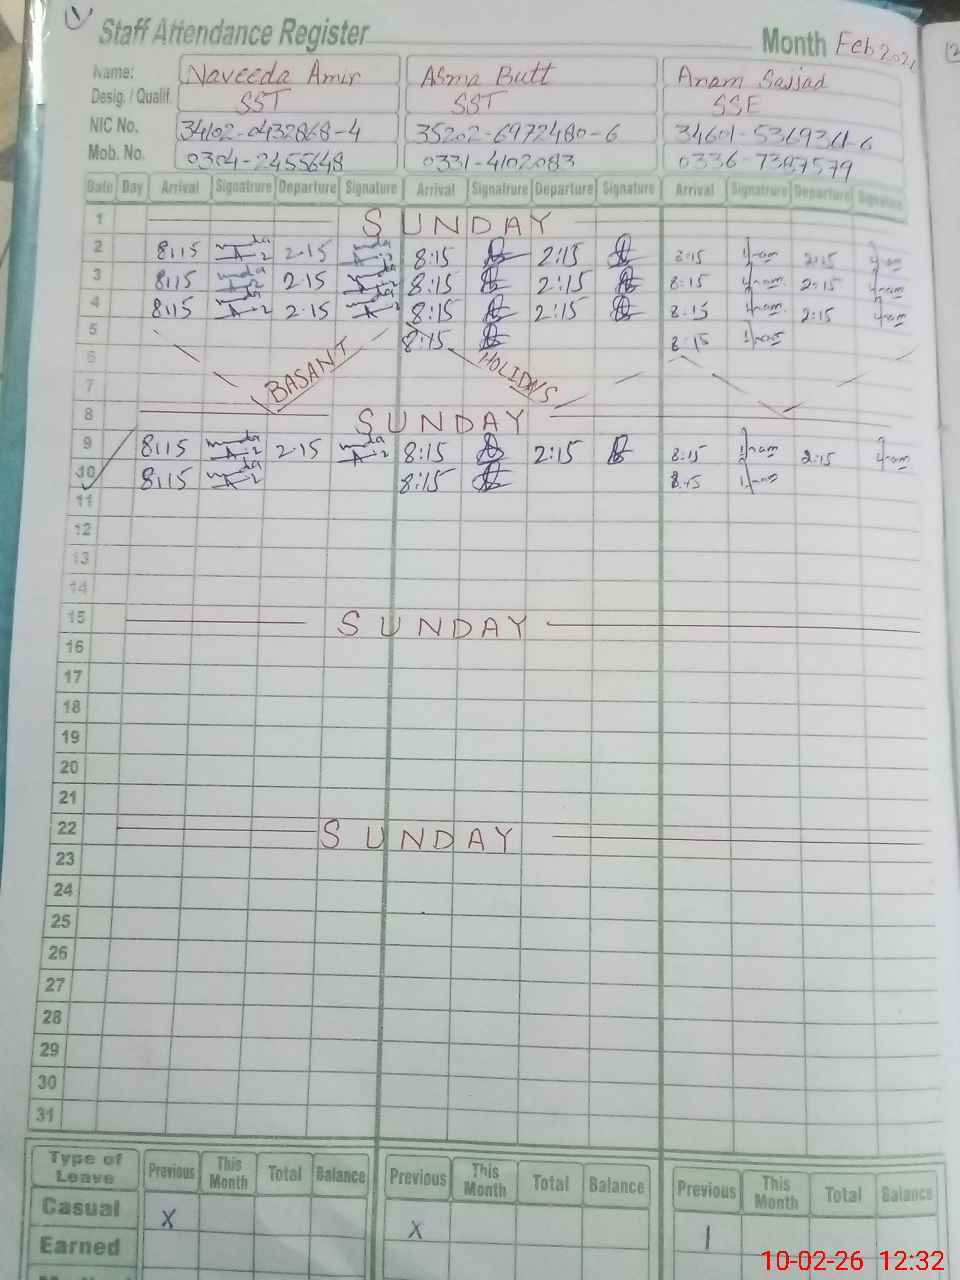 1
Staff Attendance Register
Month Feb 2026
Name: Naveeda Amir Asma Butt Anam Sajjad
Desig. / Qualif. SST SST SSE
NIC No. 34102-0432868-4 35202-6972480-6
Mob. No. 0304-2455648 0331-4102083
Date Day Arrival Signatrure Departure Signature Arrival Signatrure Departure Signature Arrival Signatrure Departure Signature
1 SUNDAY
2 8:15 2:15 8:15 2:15 8:15 2:15
3 8:15 2:15 8:15 2:15 8:15 2:15
4 8:15 2:15 8:15 2:15 8:15 2:15
5 8:15 8:15
6 BASANT HOLIDAYS
7
8 SUNDAY
9 8:15 2:15 8:15 2:15 8:15 2:15
10 8:15 8:15 8:15
11
12
13
14
15 SUNDAY
16
17
18
19
20
21
22 SUNDAY
23
24
25
26
27
28
29
30
31
Type of Leave Previous This Month Total Balance Previous This Month Total Balance Previous This Month Total Balance
Casual X X 1
Earned
10-02-26 12:32